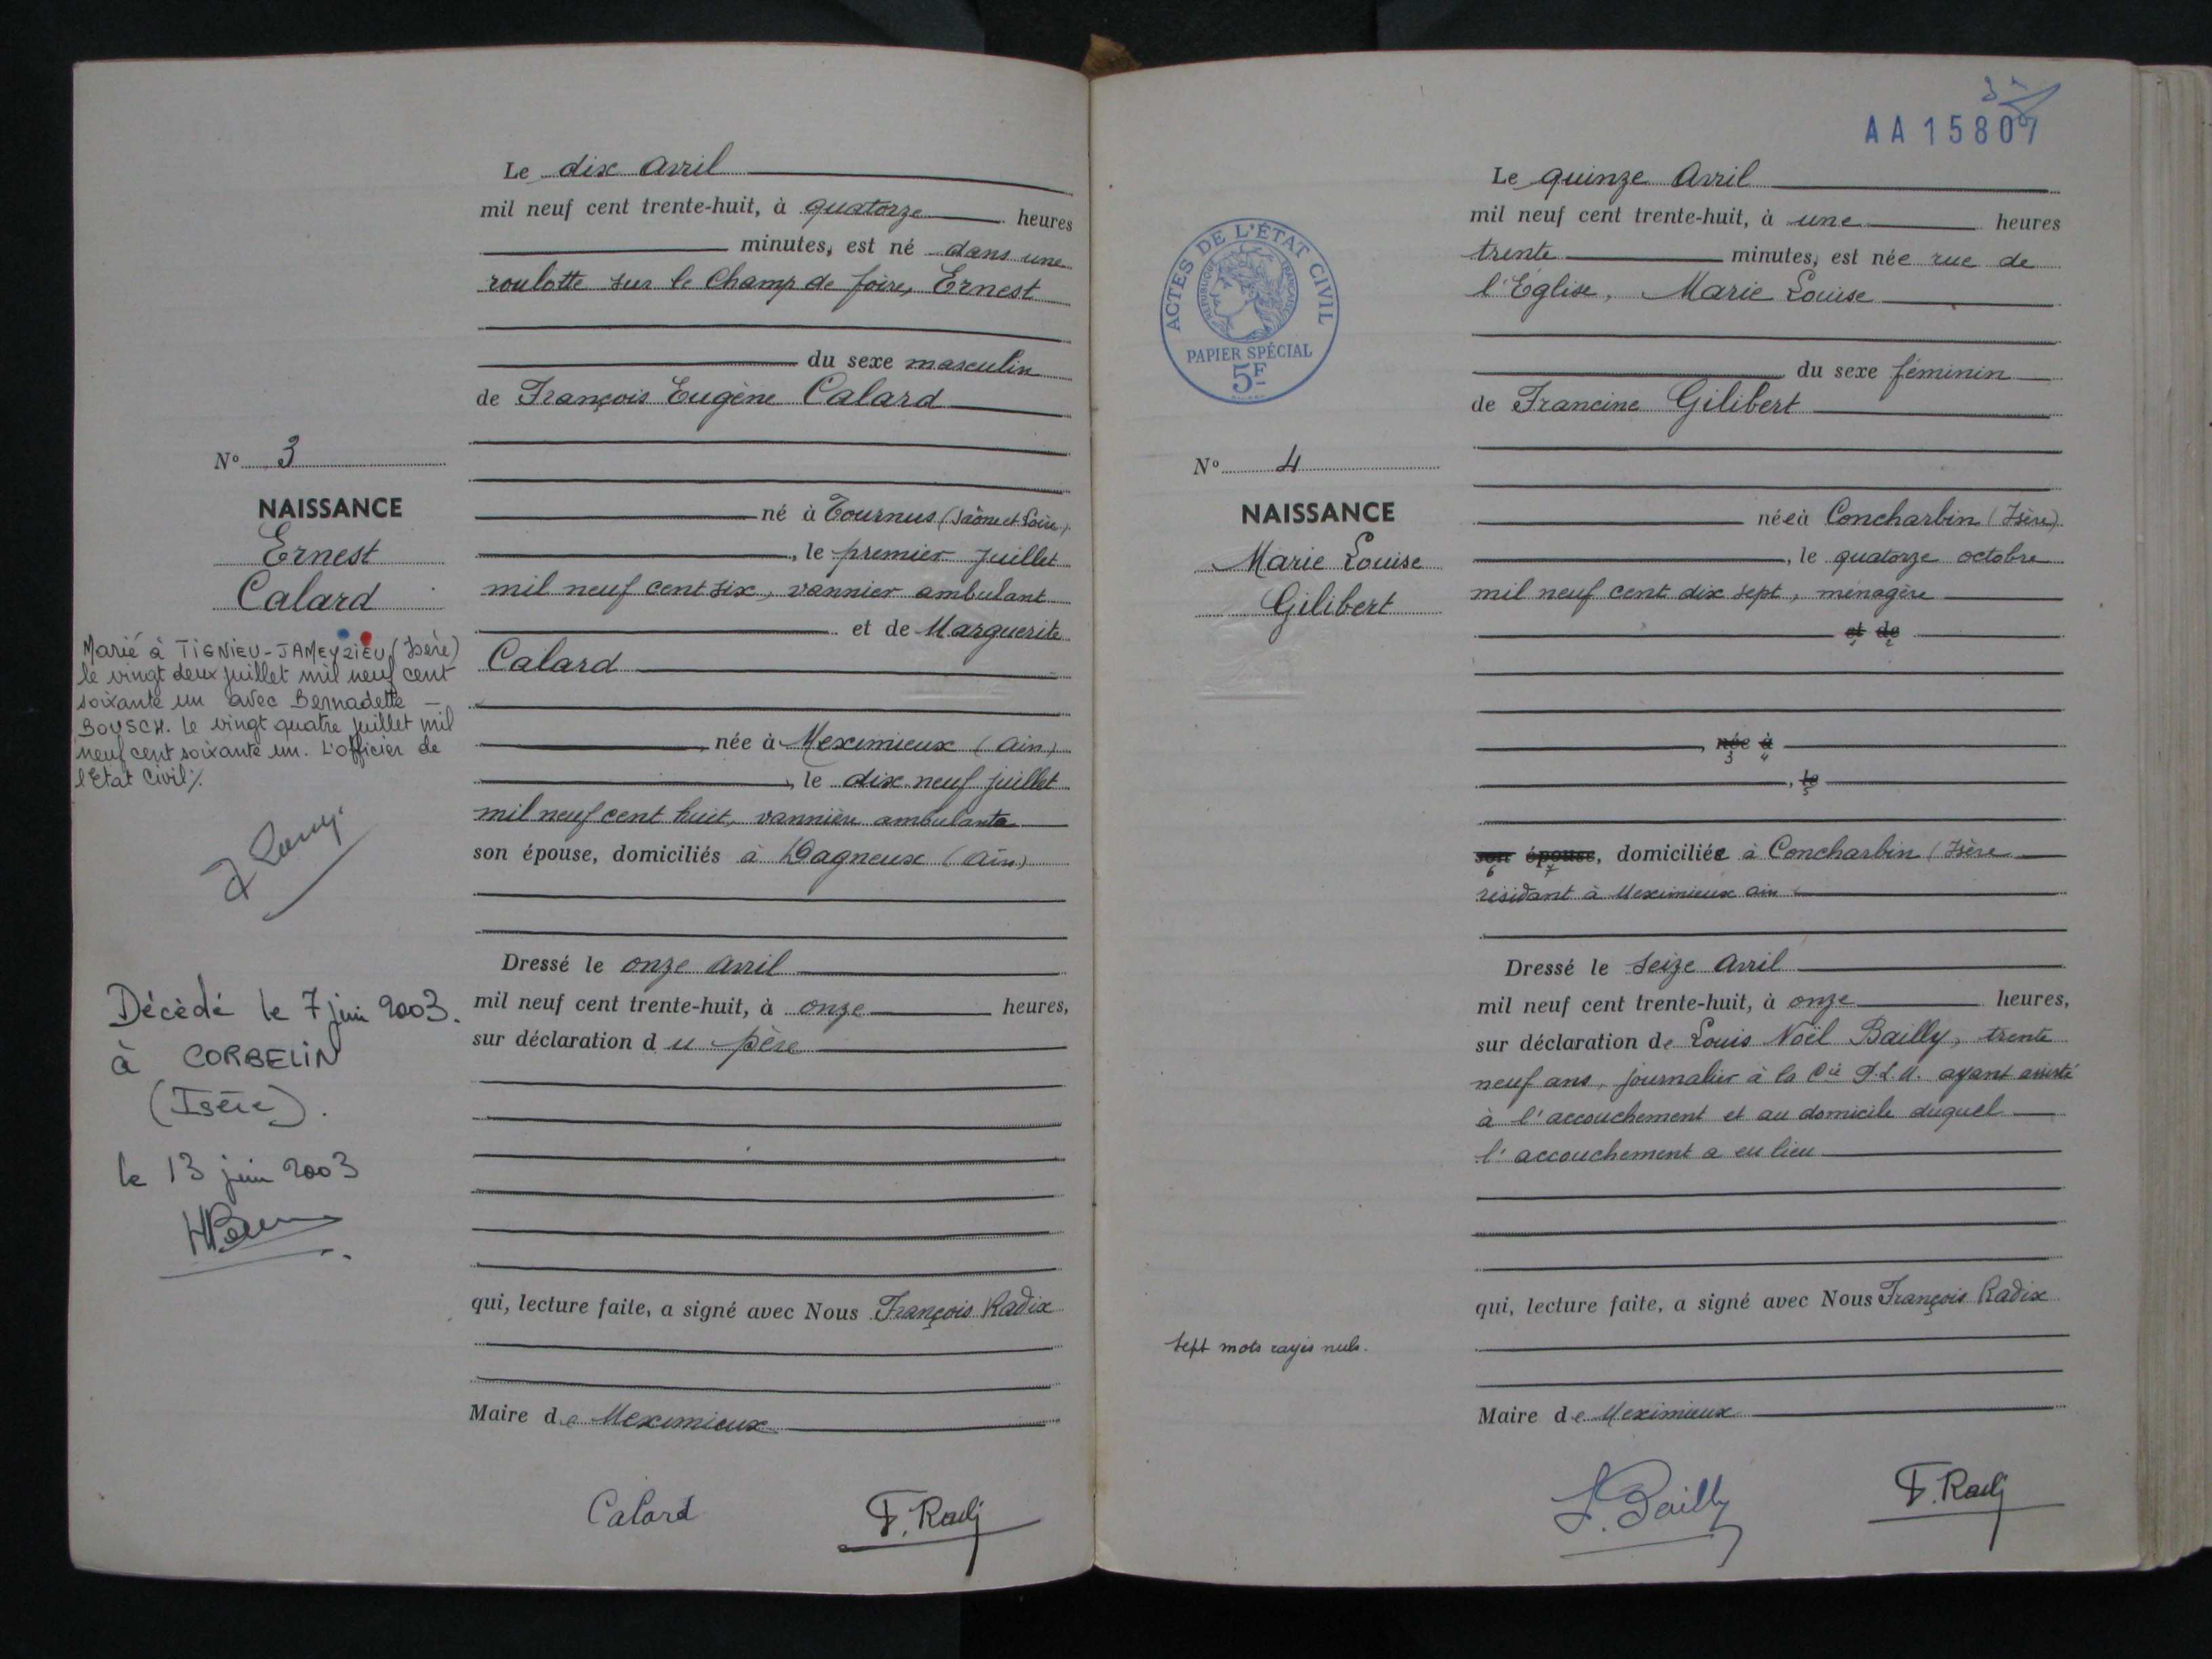 Le dix Avril
mil neuf cent trente-huit, à quatorze heures
minutes, est né dans une
roulotte sur le Champ de foire, Ernest
du sexe masculin
de François Eugène Calard
N° 3
NAISSANCE
Ernest
Calard
né à Tournus (Saône et Loire)
, le premier juillet
mil neuf cent six, vannier ambulant
et de Marguerite
Calard
, née à Meximieux (Ain)
, le dix neuf juillet
mil neuf cent huit, vannière ambulante
son épouse, domiciliés à Dagneux (Ain)
Marié à TIGNIEU-JAMEYZIEU (Isère)
le vingt deux juillet mil neuf cent
soixante un avec Bernadette
BOUSCH. Le vingt quatre juillet mil
neuf cent soixante un. L'officier de
l'Etat Civil ⁒
Dressé le onze Avril
mil neuf cent trente-huit, à onze heures,
sur déclaration du père
Décédé le 7 juin 2003.
à CORBELIN
(Isère).
le 13 juin 2003
qui, lecture faite, a signé avec Nous François Radix
Maire de Meximieux
Calard F. Radix
AA 15807
Le quinze Avril
mil neuf cent trente-huit, à une heures
trente minutes, est née rue de
l'Église, Marie Louise
du sexe féminin
de Francine Gilibert
ACTES DE L'ÉTAT CIVIL
RÉPUBLIQUE FRANÇAISE
PAPIER SPÉCIAL
5F
N° 4
NAISSANCE
Marie Louise
Gilibert
née à Concharbin (Isère)
, le quatorze octobre
mil neuf cent dix sept, ménagère
et de
1 2
, née à
3 4
, le
5
son épouse, domiciliée à Concharbin (Isère
6 7
résidant à Meximieux Ain
Dressé le seize Avril
mil neuf cent trente-huit, à onze heures,
sur déclaration de Louis Noël Bailly, trente
neuf ans, journalier à la Cie P.L.M. ayant assisté
à l'accouchement et au domicile duquel
l'accouchement a eu lieu
qui, lecture faite, a signé avec Nous François Radix
Sept mots rayés nuls.
Maire de Meximieux
L. Bailly F. Radix